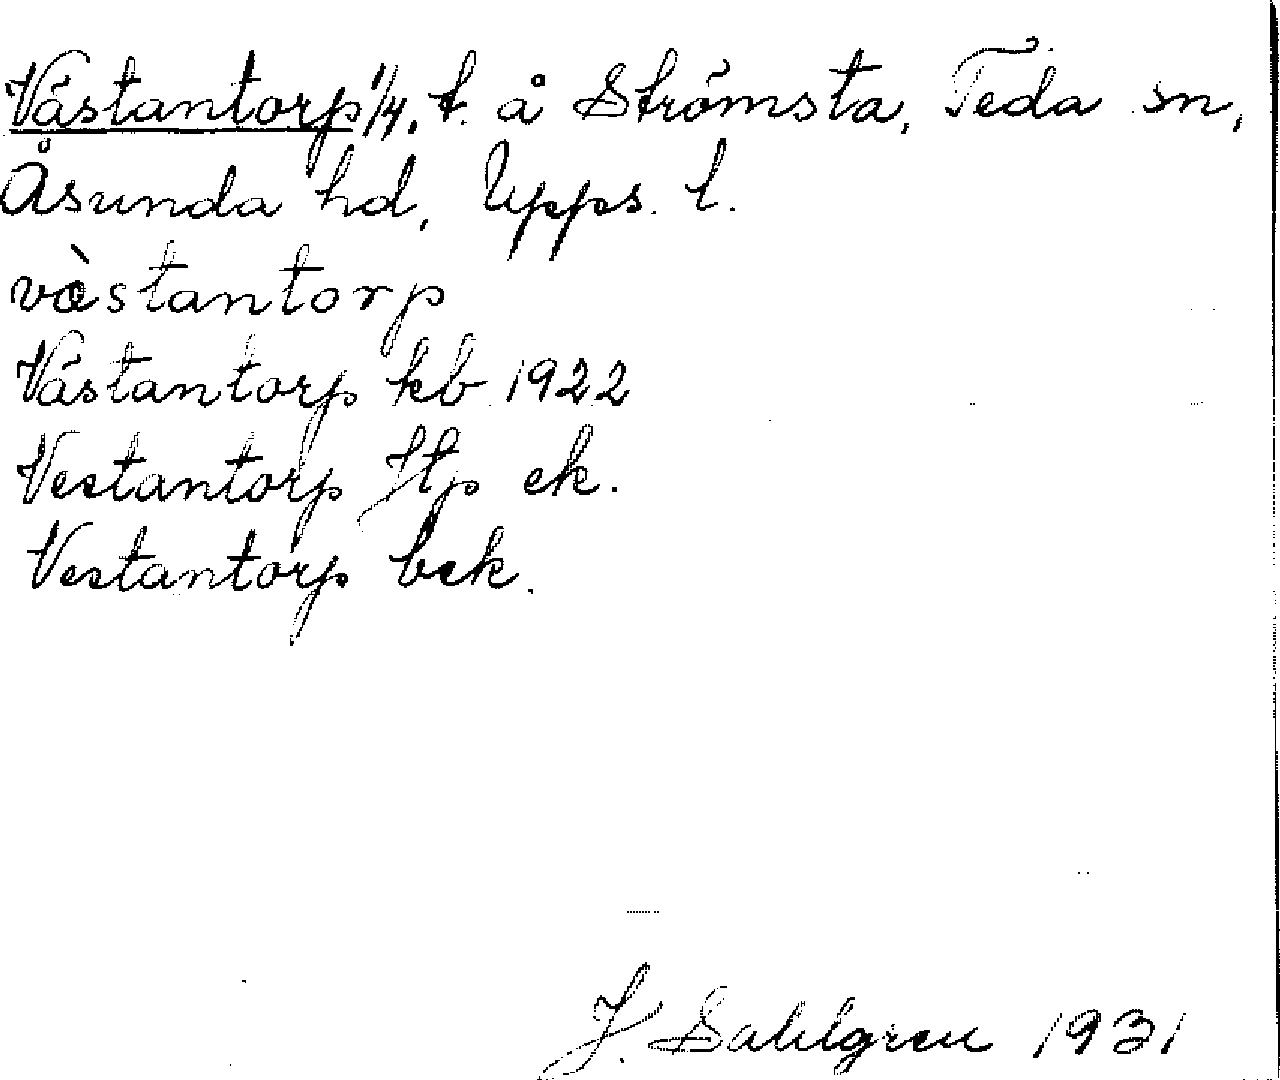 Västantorp 1/4, t. å Strömsta, Teda sn,
Åsunda hd, Upps. l.
væ̀stantorp
Västantorp kb 1922
Vestantorp Htp ek.
Vestantorp bek.
J. Sahlgren 1931